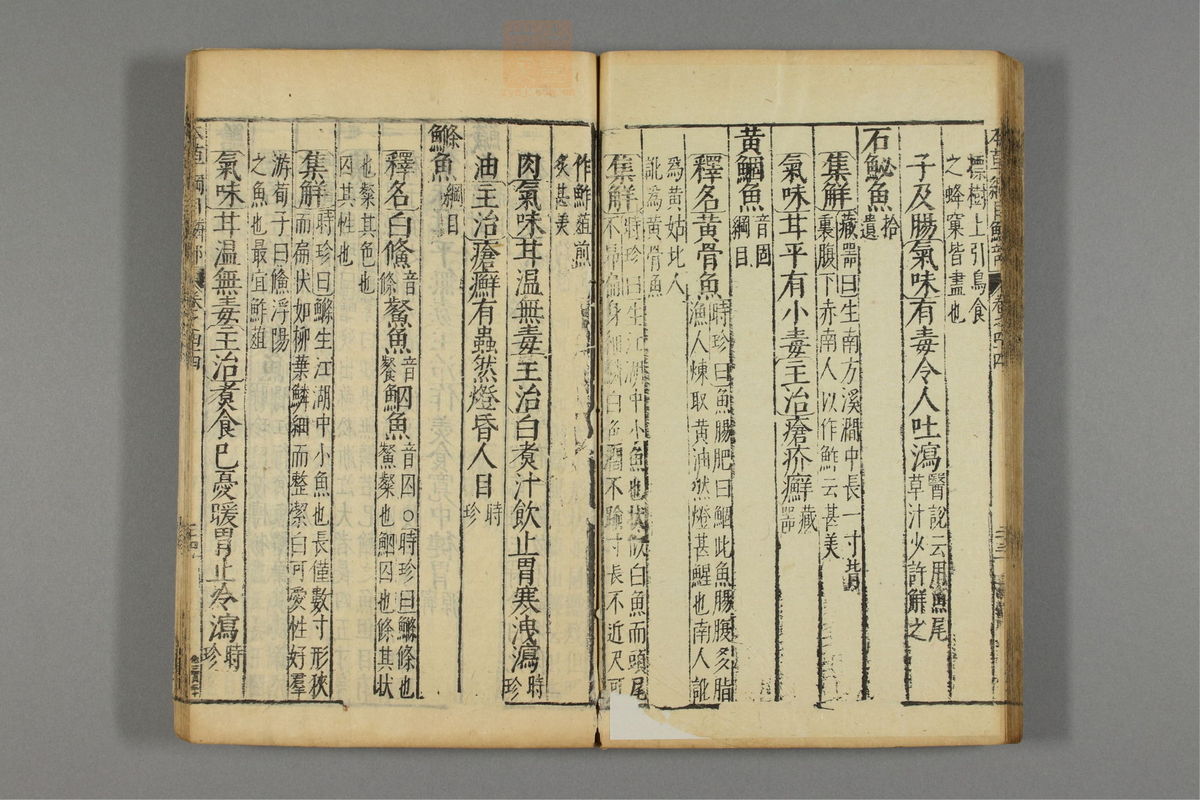 標樹上引鳥食
之蜂窠皆盡也
子及腸氣味有毒令人吐瀉醫說云用魚尾
草汁少許解之
石鮅魚拾遺
集解藏器曰生南方溪澗中長一寸背
裏腹下赤南人以作鮓云甚美
氣味甘平有小毒主治瘡疥癬藏器
黃鯝魚音固綱目
釋名黃骨魚時珍曰魚腸肥曰鯝此魚腸腹多脂
漁人煉取黃油然燈甚鯹也南人訛
為黃姑北人
訛為黃骨魚
集解時珍曰生江湖中小魚也狀似白魚而頭尾
不昂扁身細鱗白色闊不踰寸長不近尺可
作鮓葅煎
炙甚美
肉氣味甘溫無毒主治白煑汁飲止胃寒洩瀉時珍
油主治瘡癬有蟲然燈昏人目時珍
鰷魚綱目
釋名白鯈音條䱗魚音餐鮂魚音囚○時珍曰鰷條也
䱗粲也鮂囚也條其狀
也粲其色也
囚其性也
集解時珍曰鰷生江湖中小魚也長僅數寸形狹
而扁狀如柳葉鱗細而整潔白可愛性好羣
游荀子曰鯈浮陽
之魚也最宜鮓葅
氣味甘溫無毒主治煑食已憂暖胃止冷瀉時珍